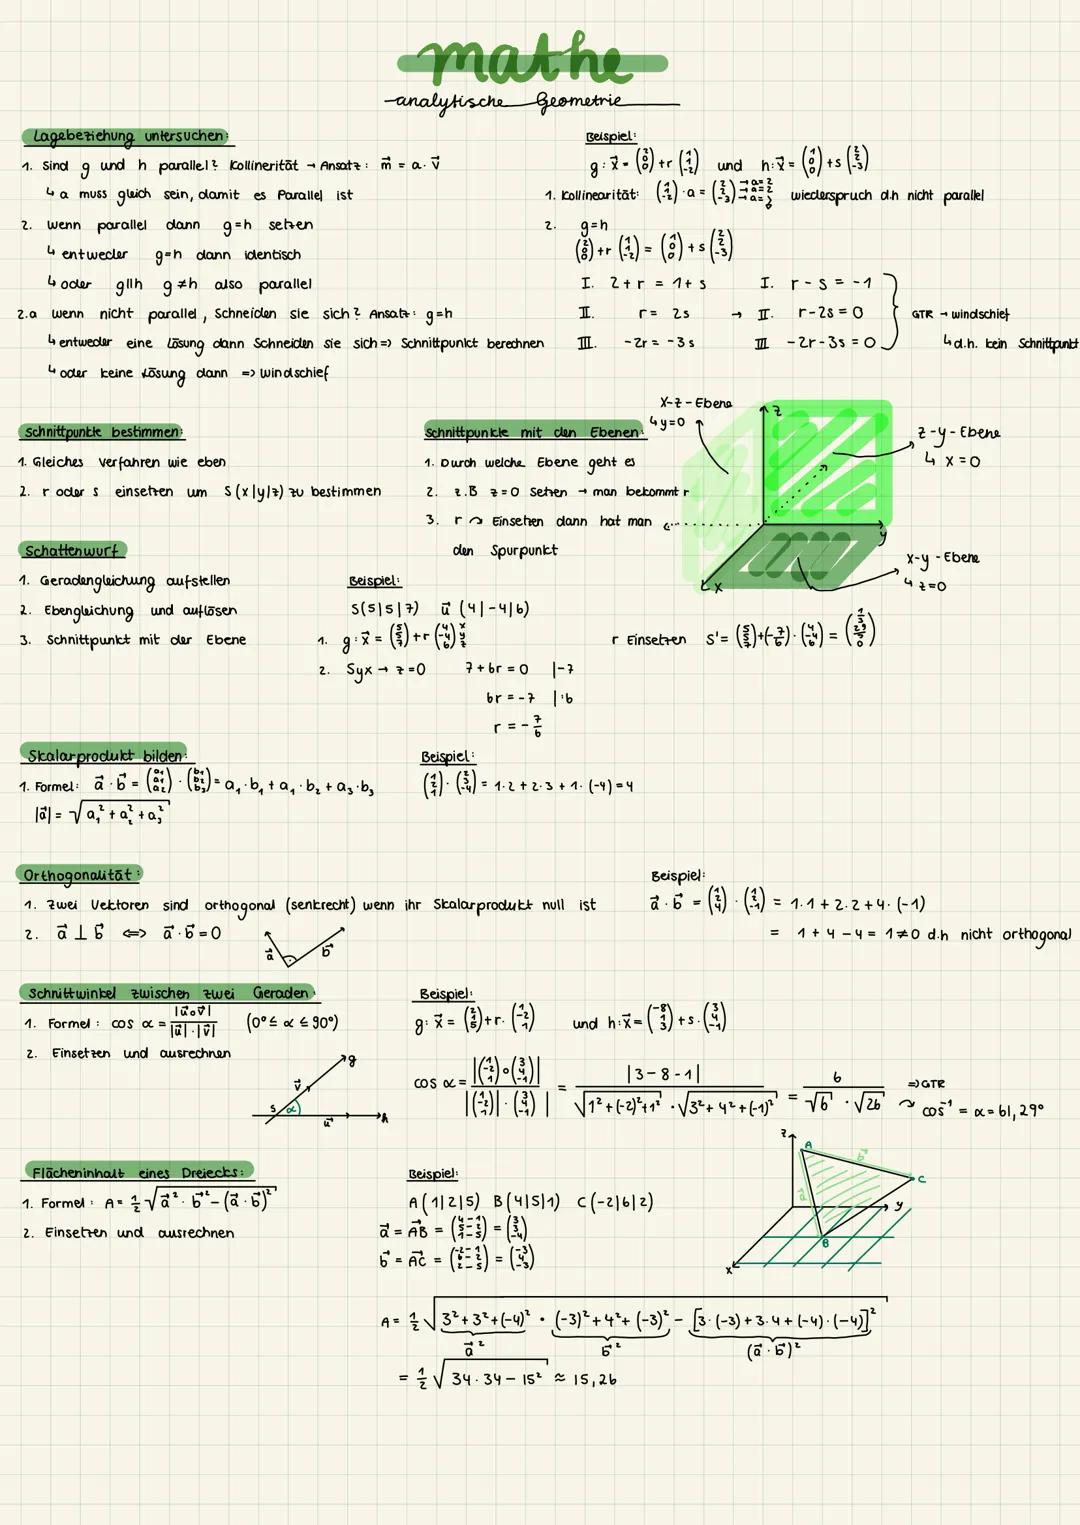 mathe
analytische Geometrie
Lagebeziehung untersuchen:
1. Sind g und h parallel? Kollinerität → Ansatz: m⃗ = a · v⃗
↳ a muss gleich sein, damit es Parallel ist
2. wenn parallel dann g=h setzen
↳ entweder g=h dann identisch
↳ oder g||h g≠h also parallel
2.a wenn nicht parallel, Schneiden sie sich? Ansatz: g=h
↳ entweder eine Lösung dann Schneiden sie sich => Schnittpunkt berechnen
↳ oder keine Lösung dann => windschief
Beispiel:
g: x⃗ = (2 0 0) + r (1 1 -2) und h: x⃗ = (1 0 0) + s (2 2 -3)
1. Kollinearität: (1 1 -2) · a = (2 2 -3) → a=2 → a=2 wiederspruch d.h nicht parallel
2. g=h
(2 0 0) + r (1 1 -2) = (1 0 0) + s (2 2 -3)
I. 2 + r = 1 + s I. r - s = -1
II. r = 2s → II. r - 2s = 0 GTR → windschief
III. -2r = -3s III -2r - 3s = 0 ↳ d.h. kein Schnittpunkt
Schnittpunkte bestimmen:
1. Gleiches Verfahren wie eben
2. r oder s einsetzen um S(x|y|z) zu bestimmen
Schnittpunkte mit den Ebenen:
1. Durch welche Ebene geht es
2. z.B z=0 Setzen → man bekommt r
3. r Einsetzen dann hat man
den Spurpunkt
x-z-Ebene
↳ y=0
z
z-y-Ebene
↳ x=0
y
x-y-Ebene
↳ z=0
x
Schattenwurf
1. Geradengleichung aufstellen
2. Ebengleichung und auflösen
3. Schnittpunkt mit der Ebene
Beispiel:
S(5|5|7) u⃗ (4|-4|6)
1. g: x⃗ = (5 5 7) + r (4 -4 6) x y z
2. Syx → z=0 7 + 6r = 0 |-7
6r = -7 |:6
r = -7/6
r Einsetzen S' = (5 5 7) + (-7/6) · (4 -4 6) = (1/3 29/3 0)
Skalarprodukt bilden:
1. Formel: a⃗ · b⃗ = (a₁ a₁ a₂) · (b₁ b₂ b₃) = a₁ · b₁ + a₁ · b₂ + a₃ · b₃
|a⃗| = √a₁² + a₂² + a₃²
Beispiel:
(1 2 1) · (2 3 -4) = 1·2 + 2·3 + 1·(-4) = 4
Orthogonalität:
1. Zwei Vektoren sind orthogonal (senkrecht) wenn ihr Skalarprodukt null ist
2. a⃗ ⊥ b⃗ ⟺ a⃗ · b⃗ = 0
a⃗ b⃗
Beispiel:
a⃗ · b⃗ = (1 2 4) · (1 2 -1) = 1·1 + 2·2 + 4·(-1)
= 1 + 4 - 4 = 1 ≠ 0 d.h nicht orthogonal
Schnittwinkel zwischen zwei Geraden:
1. Formel: cos α = |u⃗∘v⃗| / |u⃗|·|v⃗| (0° ≤ α ≤ 90°)
2. Einsetzen und ausrechnen
g
v⃗
S α
u⃗ h
Beispiel:
g: x⃗ = (2 1 5) + r · (1 -2 1) und h: x⃗ = (-8 1 3) + s · (3 4 -1)
cos α = |(1 -2 1) ∘ (3 4 -1)| / |(1 -2 1)| · (3 4 -1)| = |3 - 8 - 1| / √1² + (-2)² + 1² · √3² + 4² + (-1)² = 6 / √6 · √26 => GTR
cos⁻¹ = α = 61,29°
Flächeninhalt eines Dreiecks:
1. Formel: A = 1/2 √a⃗² · b⃗² - (a⃗ · b⃗)²
2. Einsetzen und ausrechnen
Beispiel:
A(1|2|5) B(4|5|1) C(-2|6|2)
a⃗ = AB⃗ = (4-1 5-2 1-5) = (3 3 -4)
b⃗ = AC⃗ = (-2-1 6-2 2-5) = (-3 4 -3)
z
A b⃗ C
a⃗
y
B
x
A = 1/2 √3² + 3² + (-4)² · (-3)² + 4² + (-3)² - [3·(-3) + 3·4 + (-4)·(-4)]²
a⃗² b⃗² (a⃗ · b⃗)²
= 1/2 √34 · 34 - 15² ≈ 15,26